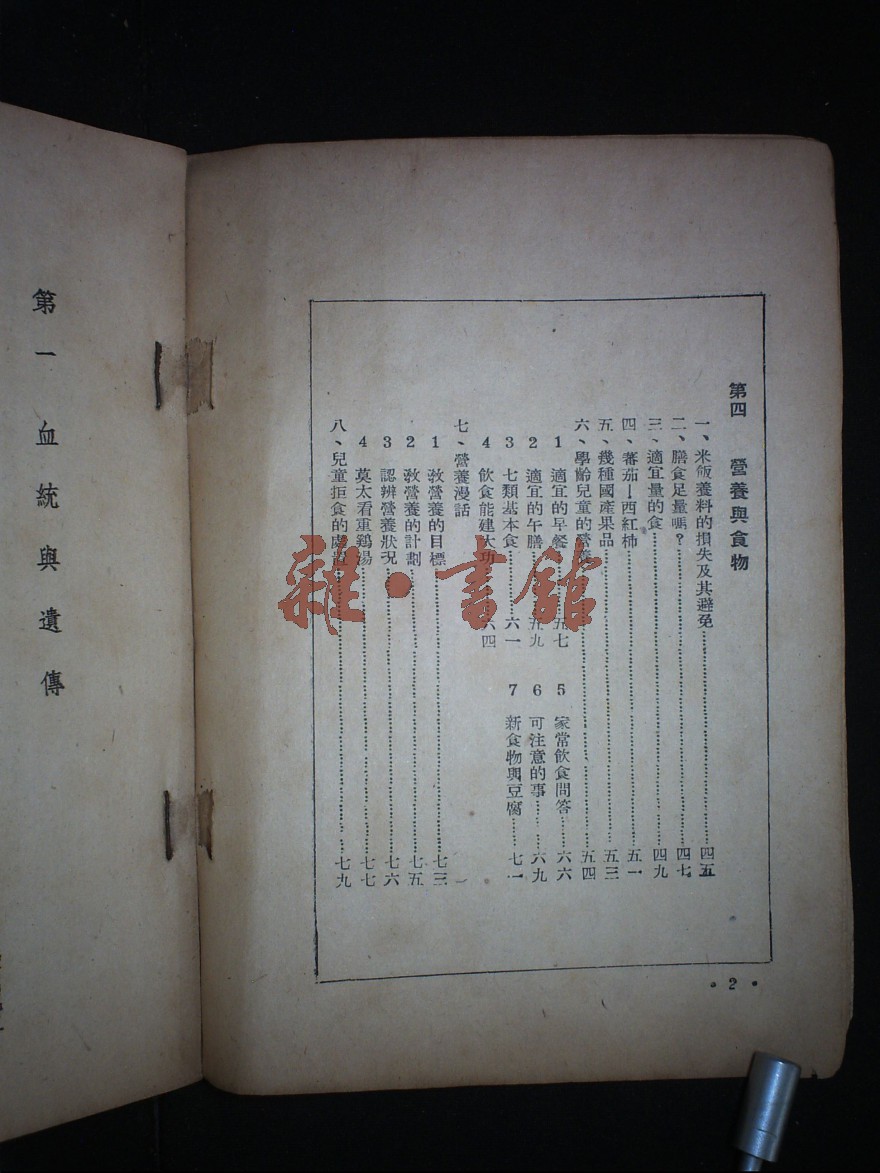 第四　營養與食物
一、米飯養料的損失及其避免……四五
二、膳食足量嗎？……四七
三、適宜量的食……四九
四、蕃茄—西紅柿……五一
五、幾種國產果品……五三
六、學齡兒童的營養……五四
1　適宜的早餐……五七
5　家常飲食問答……六六
2　適宜的午膳……五九
6　可注意的事……六九
3　七類基本食……六一
7　新食物與豆腐……七一
4　飲食能建大功……六四
七、營養漫話
1　教營養的目標……七三
2　教營養的計劃……七五
3　認辨營養狀况……七六
4　莫太看重鷄湯……七七
八、兒童拒食的處置……七九
• 2 •
第一　血統與遺傳
雜·書館